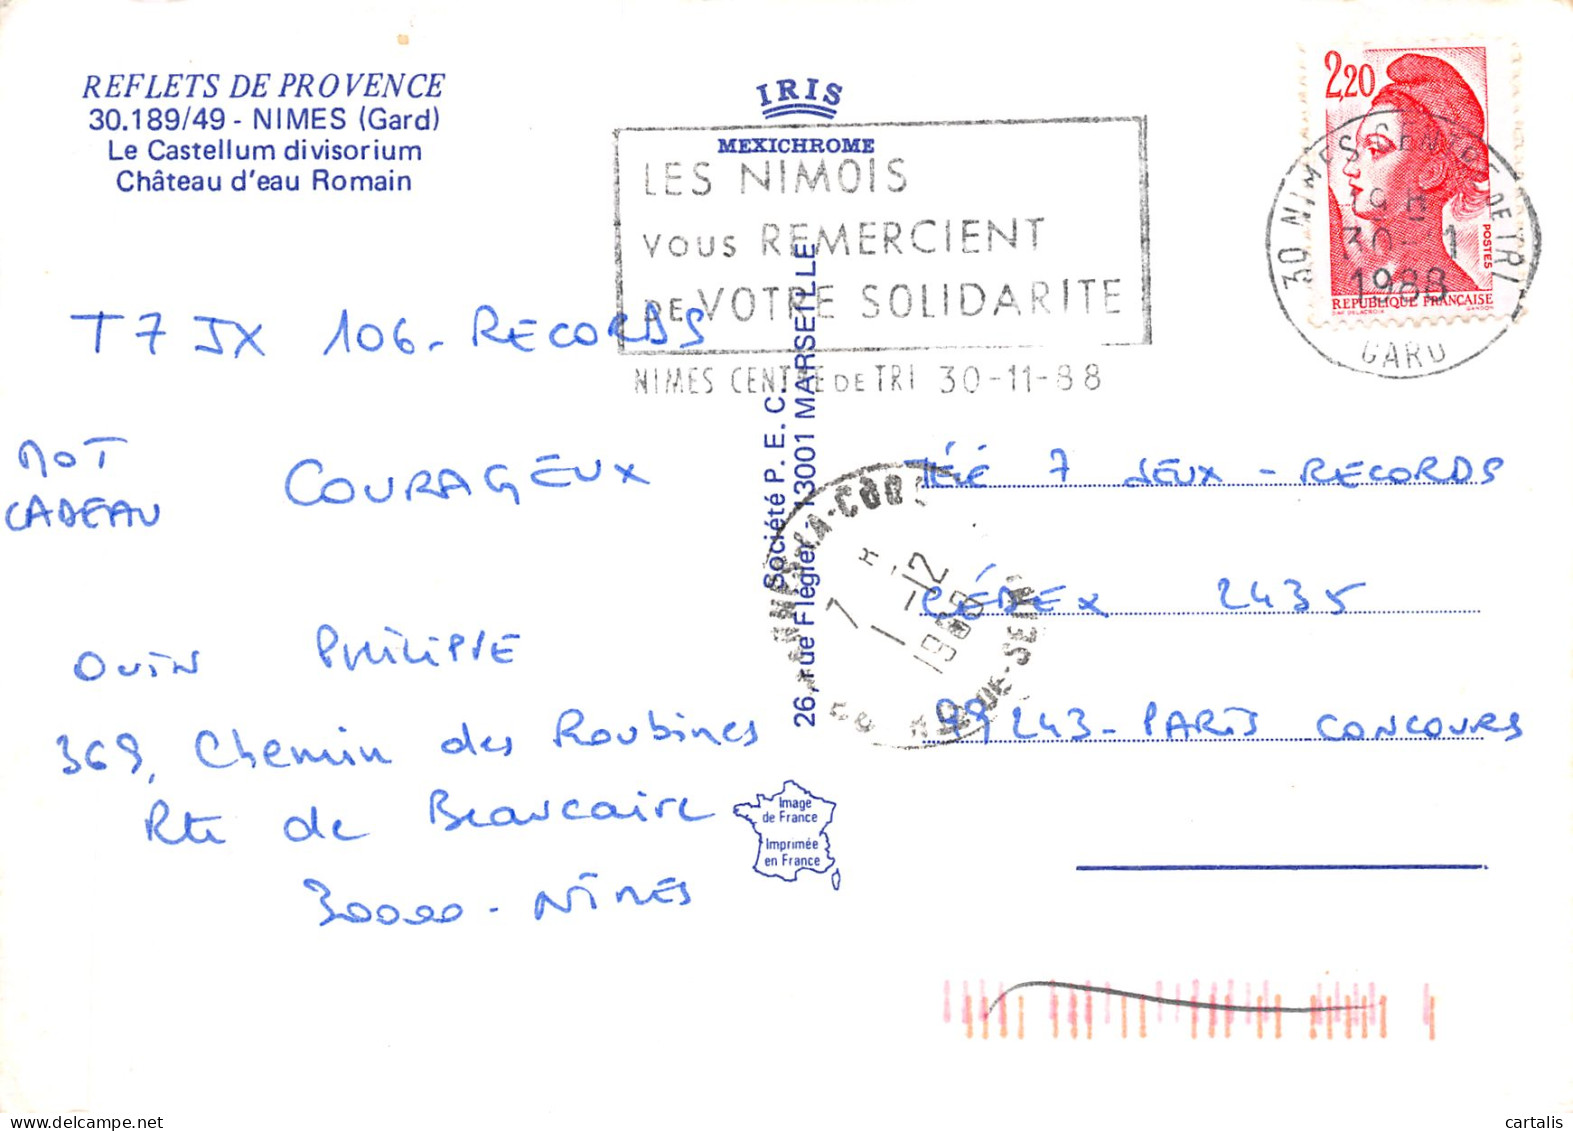 REFLETS DE PROVENCE
30.189/49 - NIMES (Gard)
Le Castellum divisorium
Château d'eau Romain
IRIS
MEXICHROME
LES NIMOIS
VOUS REMERCIENT
DE VOTRE SOLIDARITE
NIMES CENTRE DE TRI 30-11-88
2,20
POSTES
REPUBLIQUE FRANÇAISE
30 NIMES CENTRE DE TRI
19H
1988
GARD
T7JX 106-RECORDS
MOT
CADEAU
COURAGEUX
OUIN PHILIPPE
369, Chemin des Roubines
Rte de Beaucaire
30000-NÎMES
Société P. E. C.
26, rue Flégier - 13001 MARSEILLE
7 H
1-12
1988
TÉLÉ 7 JEUX - RECORDS
CÉDEX 2435
99243-PARIS CONCOURS
Image
de France
Imprimée
en France
cartalis